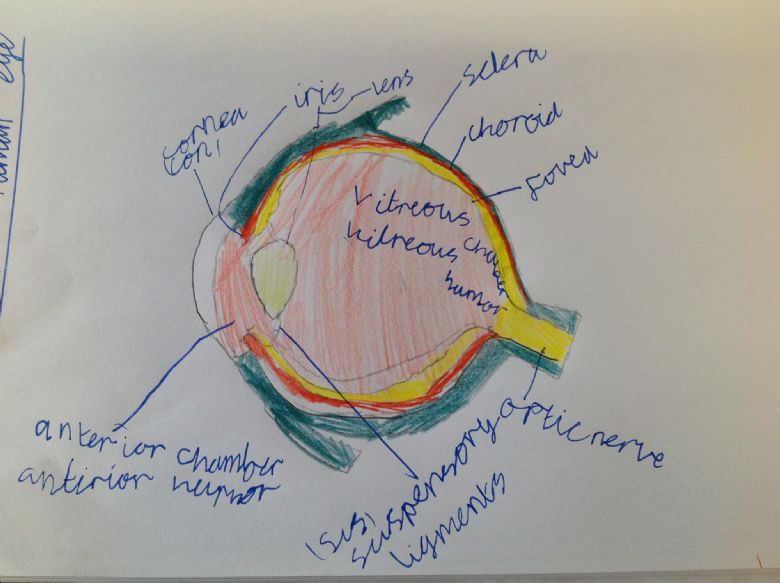 human eye
cornea
iris
lens
sclera
choroid
fovea
Vitreous chamber
vitreous humor
anterior chamber
antirior humor
suspensory
ligments
optic nerve